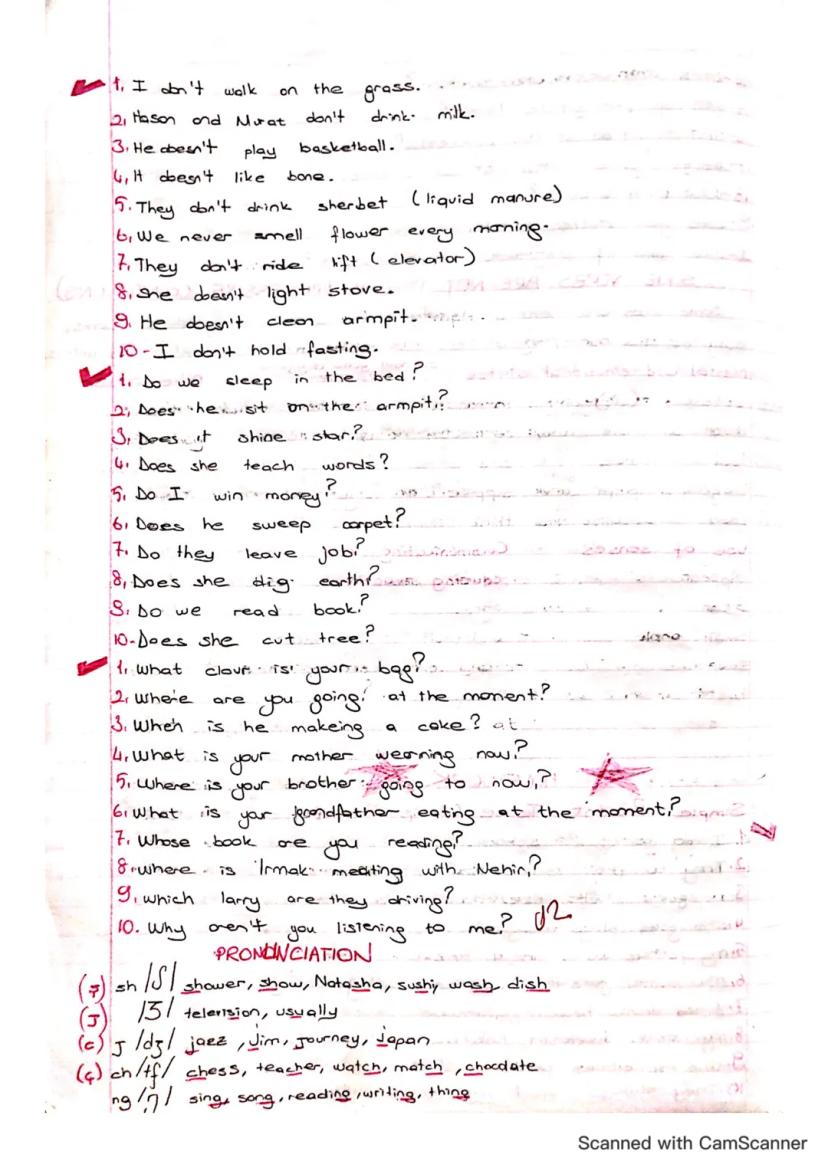 1. I don't walk on the grass.
2. Hasan and Murat don't drink milk.
3. He doesn't play basketball.
4. It doesn't like bone.
5. They don't drink sherbet (liquid manure)
6. We never smell flower every morning.
7. They don't ride lift (elevator)
8. she doesn't light stove.
9. He doesn't clean armpit.
10-I don't hold fasting.
1. Do we sleep in the bed?
2. Does he sit on the armpit?
3. Does it shine star?
4. Does she teach words?
5. Do I win money?
6. Does he sweep carpet?
7. Do they leave job?
8. Does she dig earth?
9. Do we read book?
10-Does she cut tree?
1. What clour is your bag?
2. Where are you going at the moment?
3. When is he makeing a cake? at
4. What is your mother wearning now?
5. Where is your brother going to now?
6. What is your grandfather eating at the moment?
7. Whose book are you reading?
8. where is Irmak meating with Nehir?
9. which larry are they driving?
10. Why aren't you listening to me?
PRONUNCIATION
(ş) sh /ʃ/ shower, show, Natasha, sushi, wash, dish
(J) /ʒ/ television, usually
(c) J /dʒ/ jazz, Jim, journey, Japan
(ç) ch /tʃ/ chess, teacher, watch, match, chocdate
ng /ŋ/ sing, song, reading, writing, thing
Scanned with CamScanner